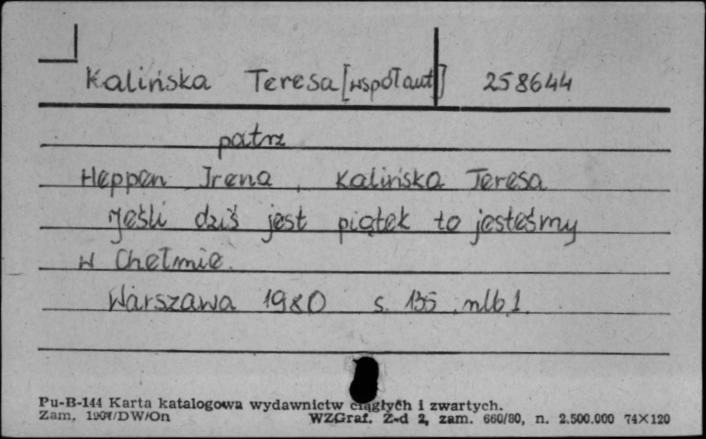 Kalińska Teresa [współaut.] 258644
patrz
Heppen Irena, Kalińska Teresa
Jeśli dziś jest piątek to jesteśmy
w Chełmie.
Warszawa 1980 s. 135, nlb 1.
Pu-B-144 Karta katalogowa wydawnictw ciągłych i zwartych.
Zam. DW/On WZGraf. Z-d 2, zam. 660/80, n. 2.500.000 74×120